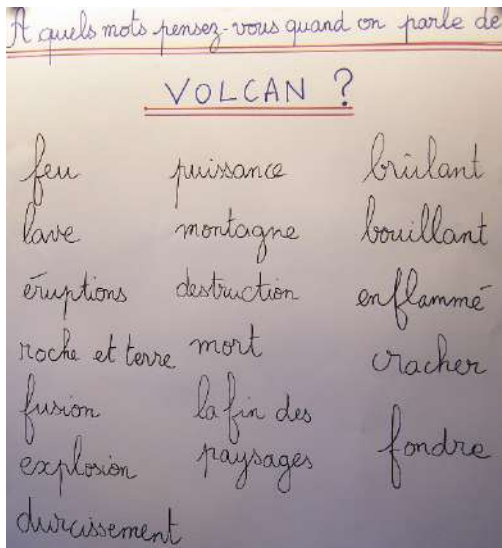 A quels mots pensez-vous quand on parle de
VOLCAN ?
feu
lave
éruptions
roche et terre
fusion
explosion
durcissement
puissance
montagne
destruction
mort
la fin des
paysages
brûlant
bouillant
enflammé
cracher
fondre